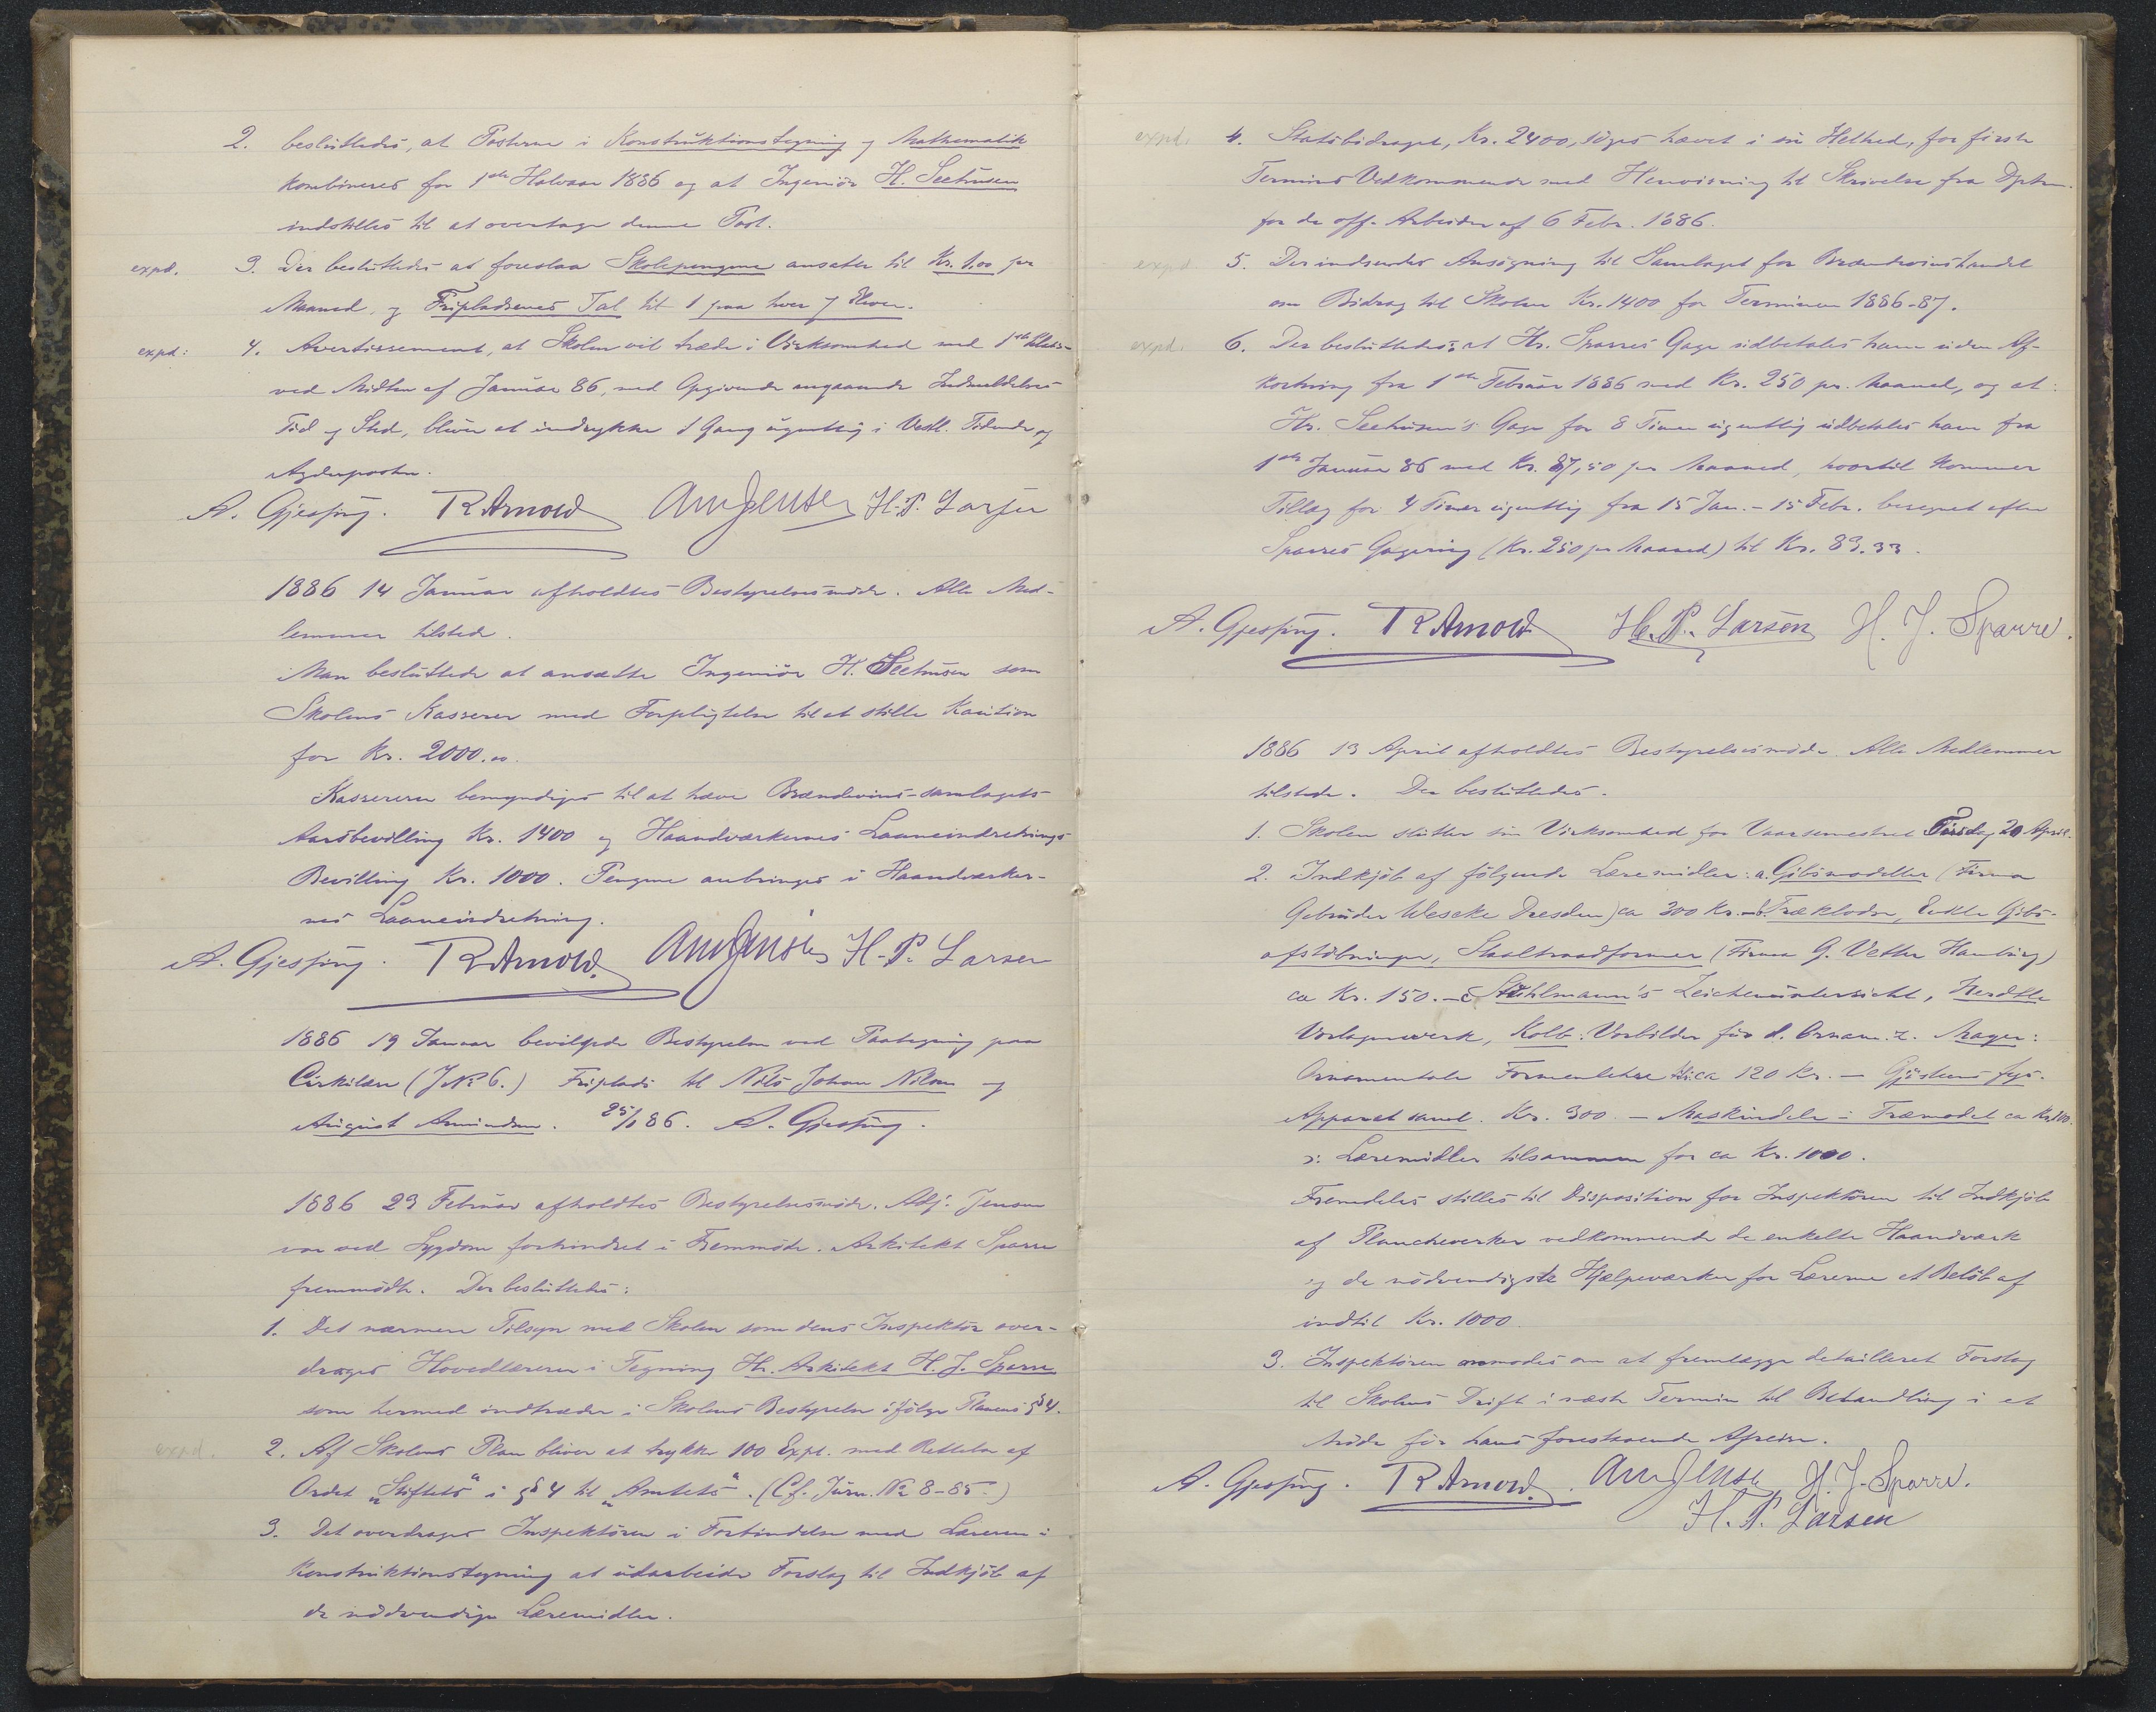 2. besluttedes, at Posterne i Konstruktionstegning og Mathematik
kombineres for 1ste Halvaar 1886 og at Ingeniör H. Seehusen
indstilles til at overtage denne Post.
expd. 3. Der besluttedes at foreslaa Skolepengene ansatte til Kr. 1.00 pr
Maaned, og Fripladsenes Tal til 1 paa hver 7 Elever.
expd: 4. Avertissement, at Skolen vil træde i Virksomhed med 1ste Klasse
ved Midten af Januar 86, med Opgivende angaaende Indmeldelses
Tid og Sted, bliver at indrykke 1 Gang ugentlig i Vestl. Tidende og
Agderposten.
A. Gjessing. R Arnold Am Jensen H. P. Larsen
1886 14 Januar afholdtes Bestyrelsesmöde. Alle Med-
lemmer tilstede.
Man besluttede at ansætte Ingeniör H. Seehusen som
Skolens Kasserer med Forpligtelse til at stille Kaution
for Kr. 2000.00.
Kassereren bemyndiges til at hæve Brændevins-samlagets
Aarsbevilling Kr. 1400 og Haandværkernes Laaneindretnings
Bevilling Kr. 1000. Pengene anbringes i Haandværker-
nes Laaneindretning.
A. Gjessing. R Arnold. Am Jensen H. P. Larsen
1886 19 Januar bevilgede Bestyrelsen ved Paategning paa
Cirkulære (J № 6.) Friplads til Nils Johan Nilsen og
August Amundsen. 25/1 86. A. Gjessing.
1886 23 Februar afholdtes Bestyrelsesmöde. Adj. Jensen
var ved Sygdom forhindret i Fremmöde. Arkitekt Sparre
fremmödte. Der besluttedes:
1. Det nærmere Tilsyn med Skolen som dens Inspektör over-
drages Hovedlæreren i Tegning Hr. Arkitekt H. J. Sparre
som hermed indtræder i Skolens Bestyrelse ifölge Planens § 4.
expd. 2. Af Skolens Plan bliver at trykke 100 Expl. med Rettelse af
Ordet „Stiftets" i § 4 til „Amtets". (Cf. Jurn. № 8-85.)
3. Det overdrages Inspektören i Forbindelse med Læreren i
Konstruktionstegning at udarbeide Forslag til Indkjöb af
de nödvendige Læremidler.
expd. 4. Statsbidraget, Kr. 2400, söges hævet i sin Helhed, for förste
Termins Vedkommende med Henvisning til Skrivelse fra Dptm.
for de off. Arbeider af 6 Febr. 1886.
expd 5. Der indsendes Ansögning til Samlaget for Brændevinshandel
om Bidrag til Skolen Kr. 1400 for Terminen 1886-87.
expd. 6. Der besluttedes: at Hr. Sparres Gage udbetales ham uden Af-
kortning fra 1ste Februar 1886 med Kr. 250 pr. Maaned, og at:
Hr. Seehusen's Gage for 8 Timer ugentlig udbetales ham fra
1ste Januar 86 med Kr. 87,50 pr Maaned, hvortil kommer
Tillæg for 4 Timer ugentlig fra 15 Jan. - 15 Febr. beregnet efter
Sparres Gagering (Kr. 250 pr Maaned) til Kr. 83.33.
A. Gjessing. R Arnold H. P. Larsen H. J. Sparre.
1886 13 April afholdtes Bestyrelsesmöde. Alle Medlemmer
tilstede. Der besluttedes.
1. Skolen slutter sin Virksomhed for Vaarsemestret Tirsdag 20 April.
2. Indkjöb af fölgende Læremidler: a. Gibsmodeller (Firma
Gebrüder Weschke Dresden) ca 300 Kr. - b. Træklodse, Enkle Gibs-
afstöbninger, Staaltraadformer (Firma G. Vetter Hamburg)
ca Kr. 150. - c Stuhlmann's Zeichenunterricht, Herdtle
Vorlagenwerk, Kolb: Vorbilder für d. Ornam. Z. Mager:
Ornamentale Formenlehre ca 120 Kr. - Gjösteens fys.
Apparat saml. Kr. 300. - Maskindele i Træmodel ca Kr. 100.
ɔ: Læremidler tilsammen for ca Kr. 1000.
Fremdeles stilles til Disposition for Inspektören til Indkjöb
af Plancheverker vedkommende de enkelte Haandværk
og de nödvendigste Hjælpeværker for Lærerne et Belöb af
indtil Kr. 1000.
3. Inspektören anmodes om at fremlægge detailleret Forslag
til Skolens Drift i næste Termin til Behandling i et
Möde för hans forestaaende Afreise.
A. Gjessing. R Arnold. Am Jensen H. J. Sparre.
H. P. Larsen